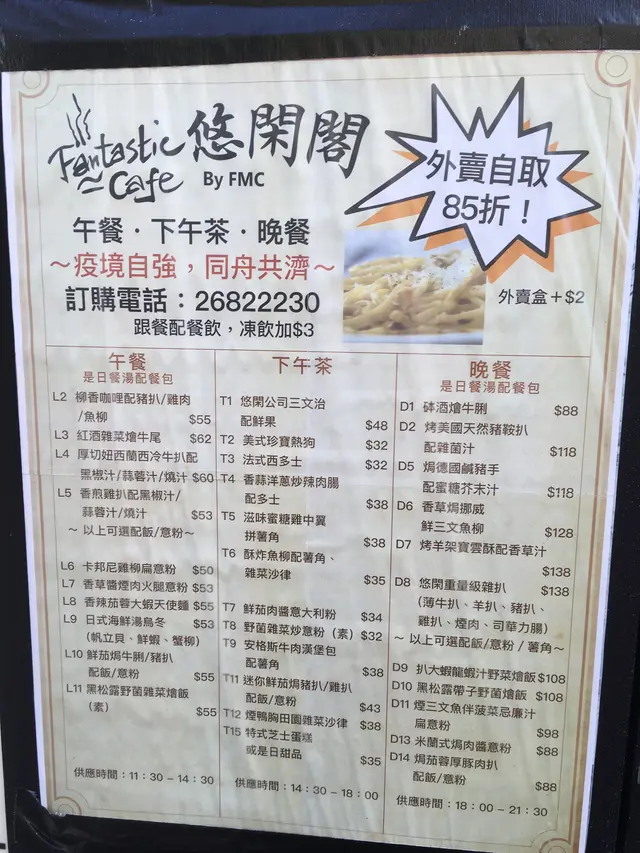 Fantastic Cafe
悠閑閣
By FMC
外賣自取
85折！
午餐．下午茶．晚餐
～疫境自強，同舟共濟～
訂購電話：26822230
跟餐配餐飲，凍飲加$3
外賣盒＋$2
午餐
是日餐湯配餐包
L2 柳香咖哩配豬扒/雞肉
/魚柳 $55
L3 紅酒雜菜燴牛尾 $62
L4 厚切妞西蘭西冷牛扒配
黑椒汁/蒜蓉汁/燒汁 $60
L5 香煎雞扒配黑椒汁/
蒜蓉汁/燒汁 $53
～以上可選配飯/意粉～
L6 卡邦尼雞柳扁意粉 $50
L7 香草醬煙肉火腿意粉 $53
L8 香辣茄蓉大蝦天使麵 $55
L9 日式海鮮湯烏冬 $53
(帆立貝、鮮蝦、蟹柳)
L10 鮮茄焗牛脷/豬扒
配飯/意粉 $55
L11 黑松露野菌雜菜燴飯
(素) $55
供應時間：11：30－14：30
下午茶
T1 悠閑公司三文治
配鮮果 $48
T2 美式珍寶熱狗 $32
T3 法式西多士 $32
T4 香蒜洋蔥炒辣肉腸
配多士 $38
T5 滋味蜜糖雞中翼
拼薯角 $38
T6 酥炸魚柳配薯角、
雜菜沙律 $35
T7 鮮茄肉醬意大利粉 $34
T8 野菌雜菜炒意粉（素）$32
T9 安格斯牛肉漢堡包
配薯角 $38
T11 迷你鮮茄焗豬扒/雞扒
配飯/意粉 $43
T12 煙鴨胸田園雜菜沙律 $38
T15 特式芝士蛋糕
或是日甜品 $35
供應時間：14：30－18：00
晚餐
是日餐湯配餐包
D1 砵酒燴牛脷 $88
D2 烤美國天然豬鞍扒
配雜菌汁 $118
D5 焗德國鹹豬手
配蜜糖芥末汁 $118
D6 香草焗挪威
鮮三文魚柳 $128
D7 烤羊架寶雲酥配香草汁
$138
D8 悠閑重量級雜扒 $138
(薄牛扒、羊扒、豬扒、
雞扒、煙肉、司華力腸)
～以上可選配飯/意粉/薯角～
D9 扒大蝦龍蝦汁野菜燴飯 $108
D10 黑松露帶子野菌燴飯 $108
D11 煙三文魚伴菠菜忌廉汁
扁意粉 $98
D13 米蘭式焗肉醬意粉 $88
D14 焗茄蓉厚豚肉扒
配飯/意粉 $88
供應時間：18：00－21：30